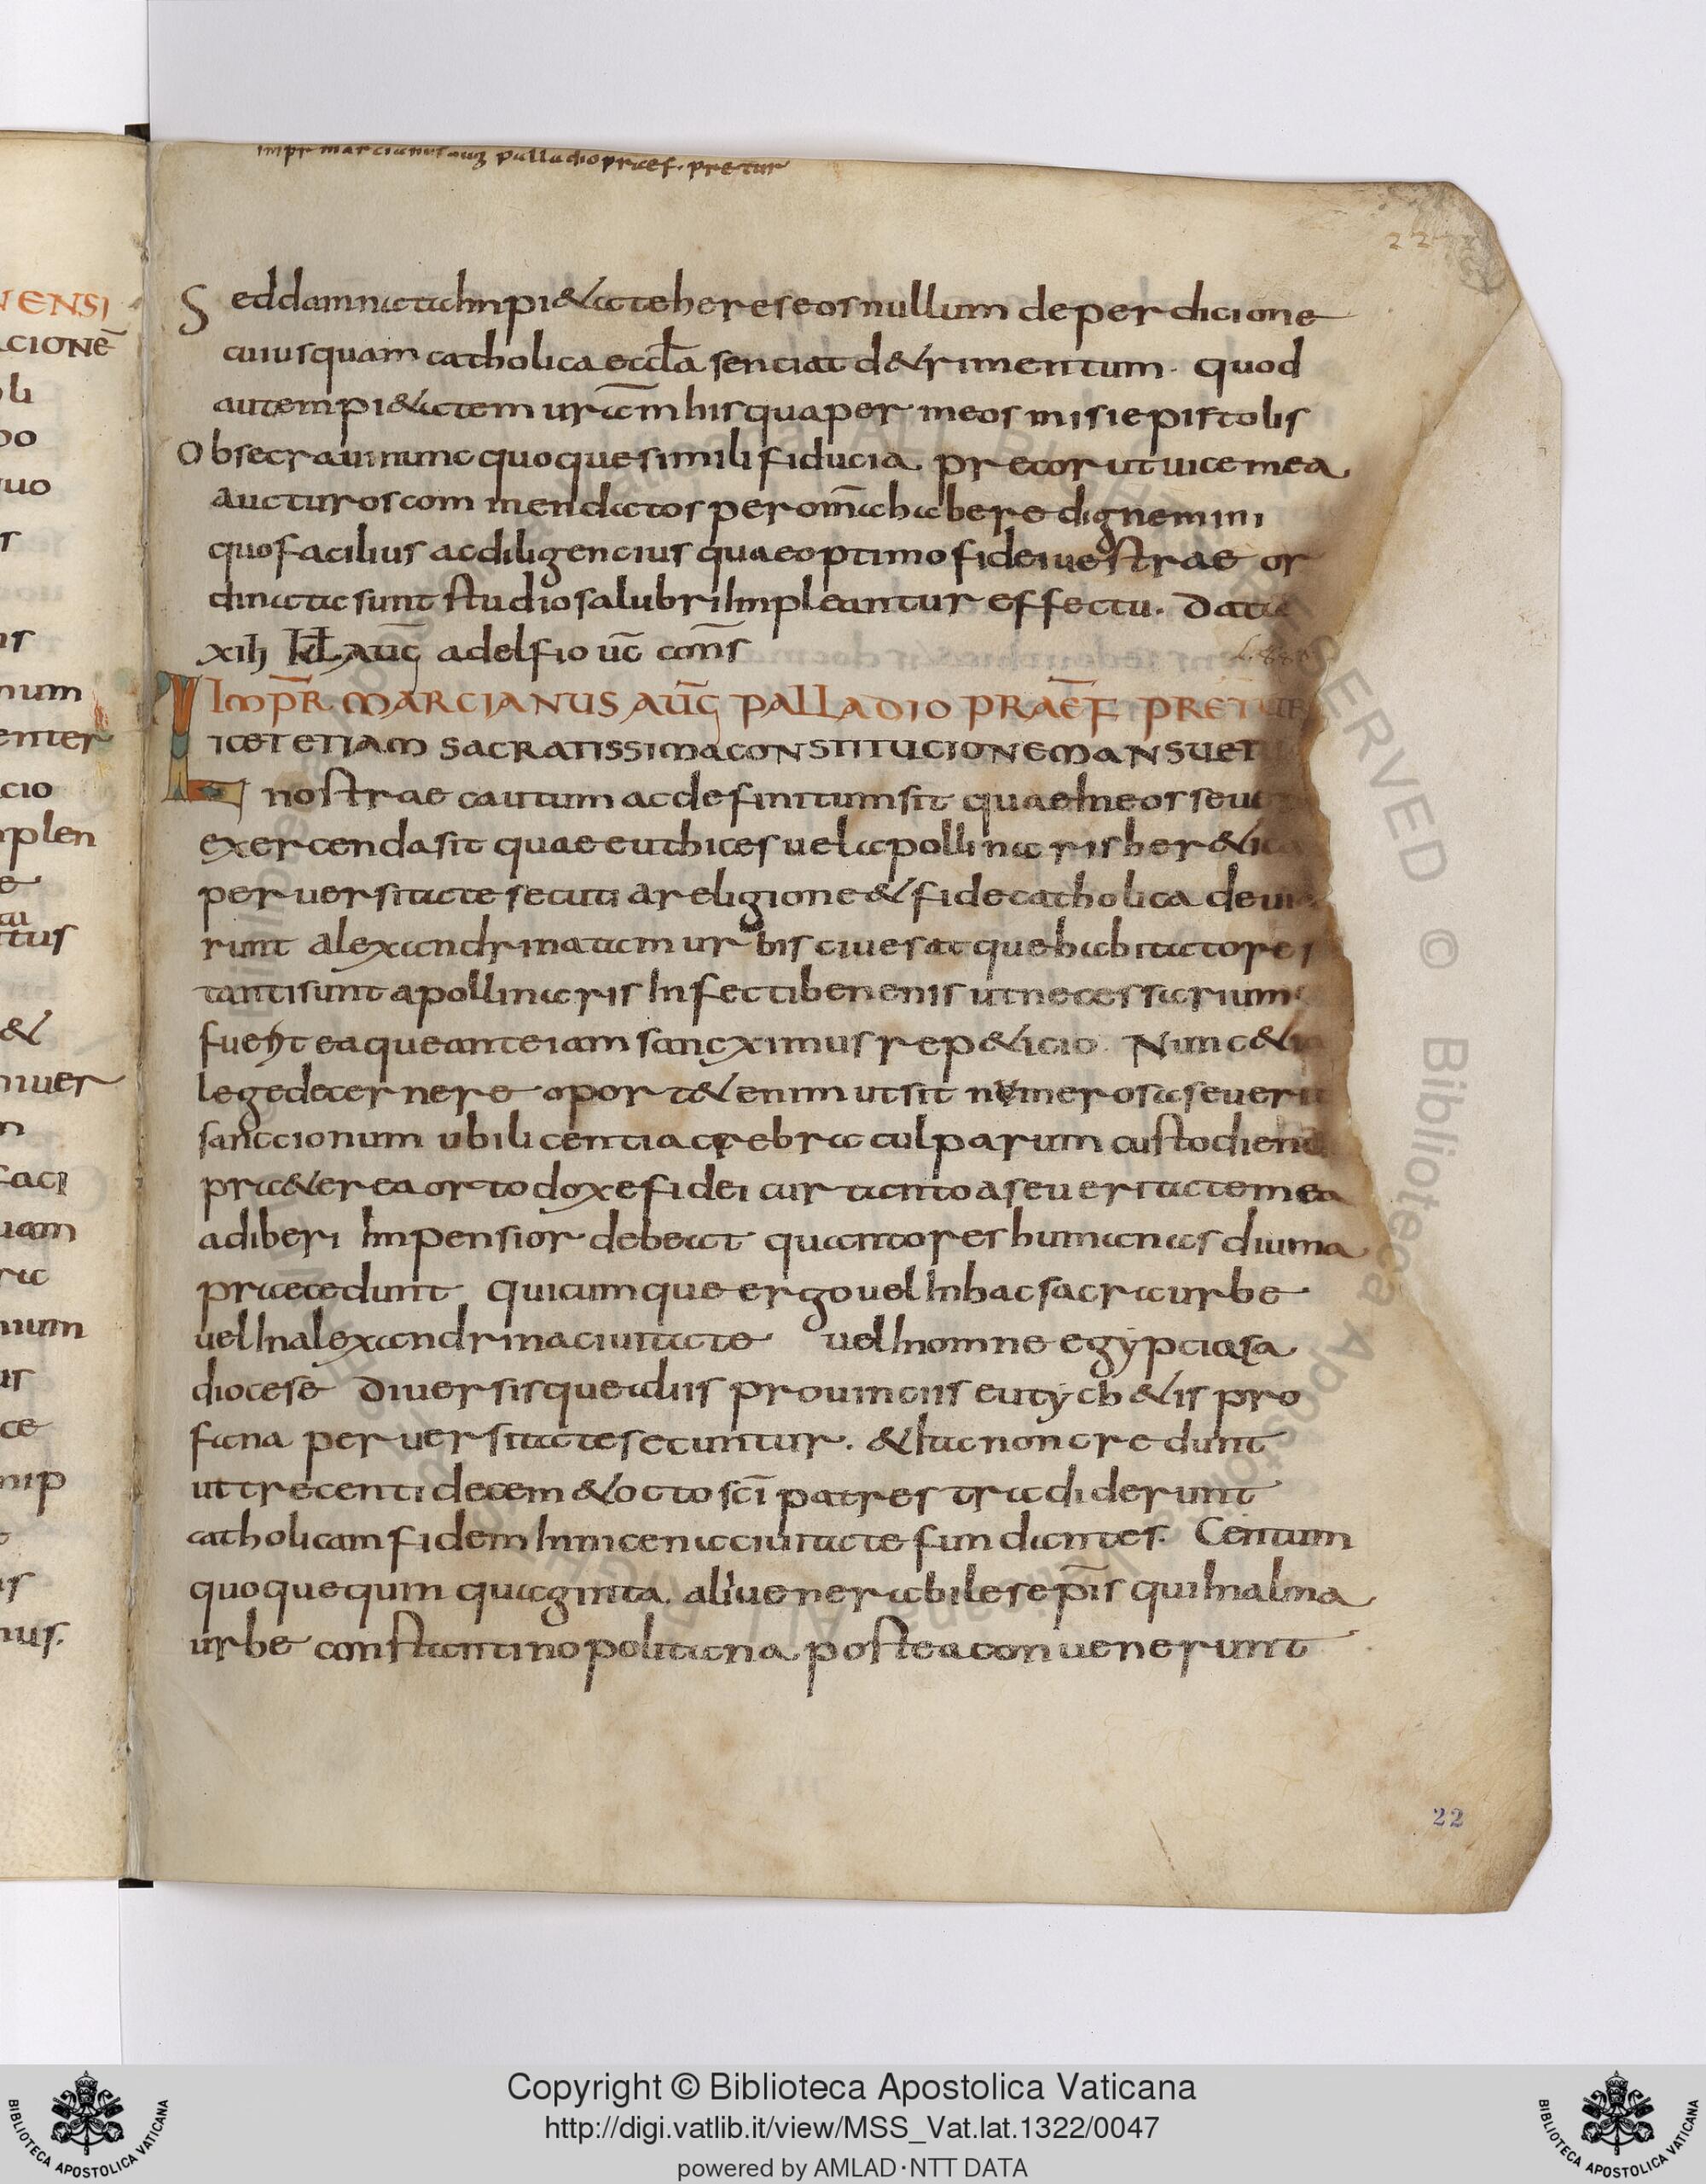 impr marcianus aug palladio praef. pretur
22
Sed damnata impietate hereseos nullum deperdicione
cuiusquam catholica eccla senciat detrimentum. quod
autem pietatem uram his qua per meos misi epistolis
Obsecraui nunc quoque simili fiducia precor ut uice mea
aucturos commendatos per oma habere dignemini
quo facilius ac diligencius quae optimo fidei uestrae or
dinata sunt studio salubri impleantur effectu. Data
xiii kl aug adelfio uc cons
IMPR MARCIANUS AUG PALLADIO PRAEF PRETUR
LICET ETIAM SACRATISSIMA CONSTITUCIONE MANSUETU
nostrae cautum ac definitum sit quae in eos seue
exercenda sit quae euthices uel apollinaris heretica
peruersitate secuti a religione & fide catholica deuia
runt alexandrinatam urbis ciues atque habitatores
tanti sunt apollinaris infecti benenis ut necessarium
fuerit ea que ante iam sancximus repeticio Nunc &
lege decernere oportet enim ut sit numerosa seuerit
sanccionum ubi licentia crebra culparum custodiend
praeterea ortodoxe fidei cur tanto a seueritate mea
adiberi impensior debeat quanto res humanas diuina
praecedunt Quicumque ergo uel in hac sacra urbe
uel in alexandrina ciuitate uel in omne egypciasa
diocese Diuersisque aliis prouinciis eutychetis pro
fana peruersitate secuntur. & ita non credunt
ut trecenti decem & octo sci patres tradiderunt
catholicam fidem in nicena ciuitate fundantes. Centum
quoque qum quaginta alii uenerabiles epis qui in alma
urbe constantinopolitana postea conuenerunt
22
Copyright © Biblioteca Apostolica Vaticana
http://digi.vatlib.it/view/MSS_Vat.lat.1322/0047
powered by AMLAD·NTT DATA
BIBLIOTECA APOSTOLICA VATICANA
BIBLIOTECA APOSTOLICA VATICANA